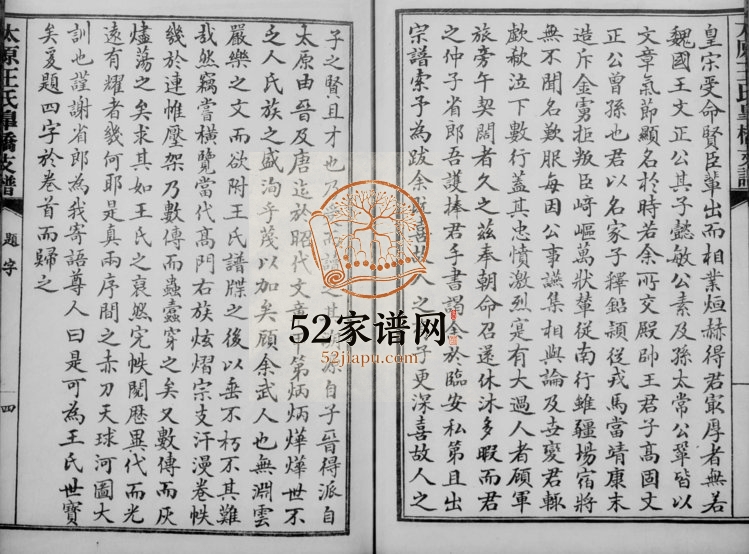 皇宋受命賢臣輩出而相業烜赫得君㝡厚者無若
魏國王文正公其子懿敏公素及孫太常公鞏皆以
文章氣節顯名於時若余所交殿帥王君子高固文
正公曾孫也君以名家子釋鉛槧從戎馬當靖康末
造斥金虜拒叛臣崎嶇萬狀輦從南行雖疆場宿將
無不聞名歎服每因公事讌集相與論及世變君輒
歔欷泣下數行蓋其忠憤激烈寔有大過人者顧軍
旅旁午契闊者久之兹奉朝命召還休沐多暇而君
之仲子省郎吾護捧君手書謁余於臨安私第且出
宗譜索予為跋余 喜故人之 子更深喜故人之
子之賢且才也乃 其 源自子晉得派自
太原由晉及唐迄於昭代文章甲第炳炳燁燁世不
乏人氏族之盛洵乎蔑以加矣顧余武人也無淵雲
嚴樂之文而欲附王氏譜牒之後以垂不朽不其難
哉然竊嘗橫覽當代高門右族炫熠宗支汗漫卷帙
幾於連帷壓架乃數傳而蟲蠹穿之矣又數傳而灰
燼蕩之矣求其如王氏之裒然完帙閱歷異代而光
遠有耀者幾何耶是真兩序間之赤刀天球河圖大
訓也謹謝省郎為我寄語尊人曰是可為王氏世寶
矣爰題四字於卷首而歸之
太原王氏皇橋支譜
題字
四
52家谱网
52jiapu.com